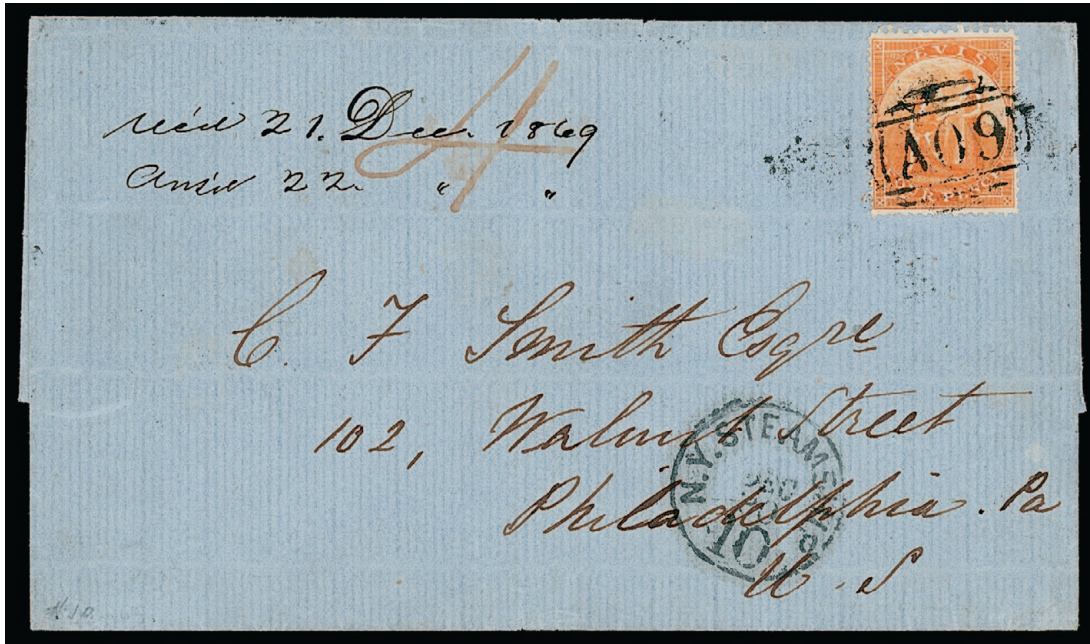 NEVIS
A09
PENCE
4
Recd 21. Dec. 1869
Ansd 22. " "
C. F Smith Esqre
102, Walnut Street
Philadelphia. Pa
U. S
N.Y. STEAMSHIP
DEC
10